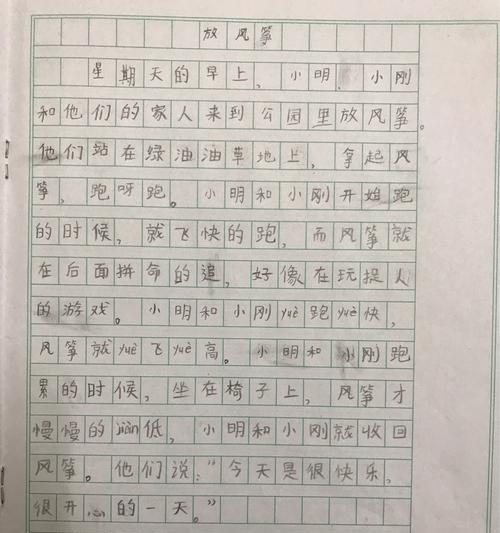 放风筝
星期天的早上，小明、小刚
和他们的家人来到公园里放风筝。
他们站在绿油油草地上，拿起风
筝，跑呀跑。小明和小刚开始跑
的时候，就飞快的跑，而风筝就
在后面拼命的追，好像在玩捉人
的游戏。小明和小刚yuè跑yuè快，
风筝就yuè飞yuè高。小明和小刚跑
累的时候，坐在椅子上，风筝才
慢慢的jiàn低，小明和小刚就收回
风筝。他们说：“今天是很快乐、
很开心的一天。”